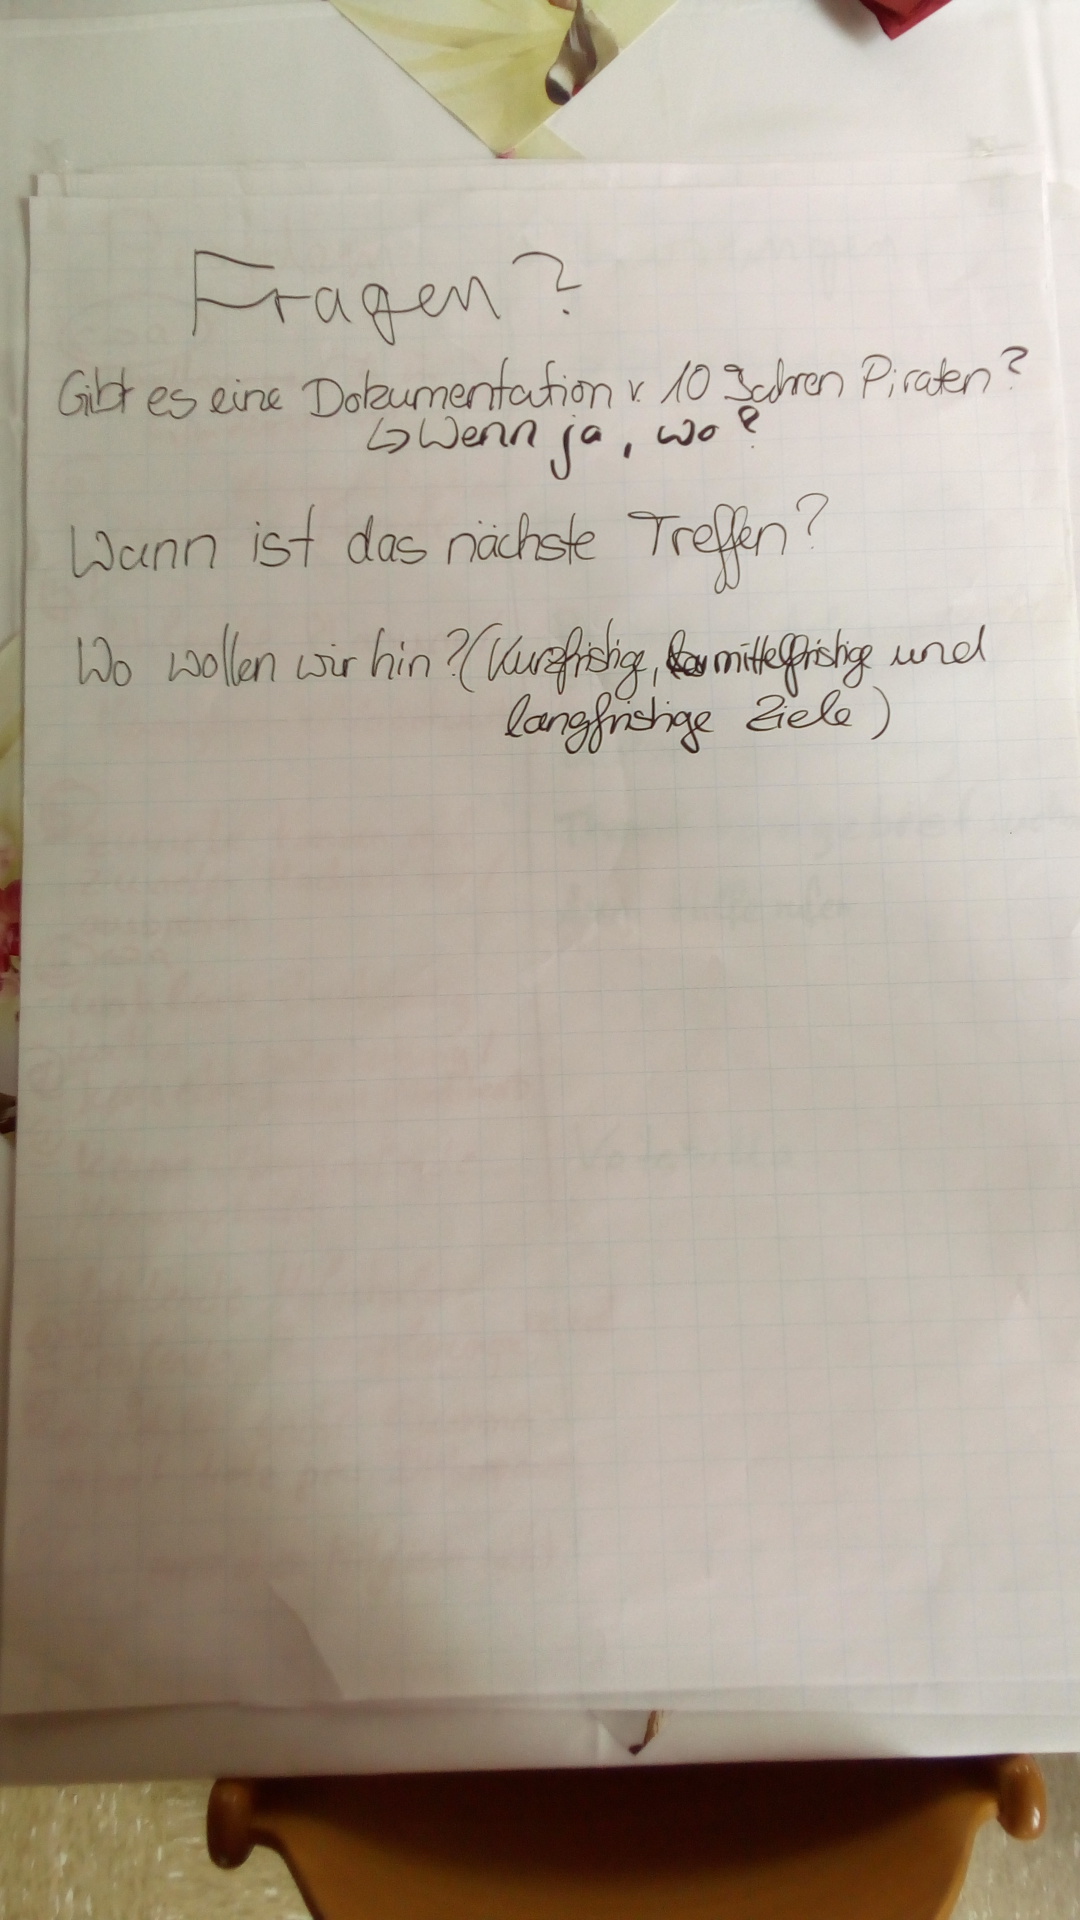 Fragen?
Gibt es eine Dokumentation v. 10 Jahren Piraten?
↳ Wenn ja, wo?
Wann ist das nächste Treffen?
Wo wollen wir hin? (Kurzfristige, mittelfristige und
langfristige Ziele)